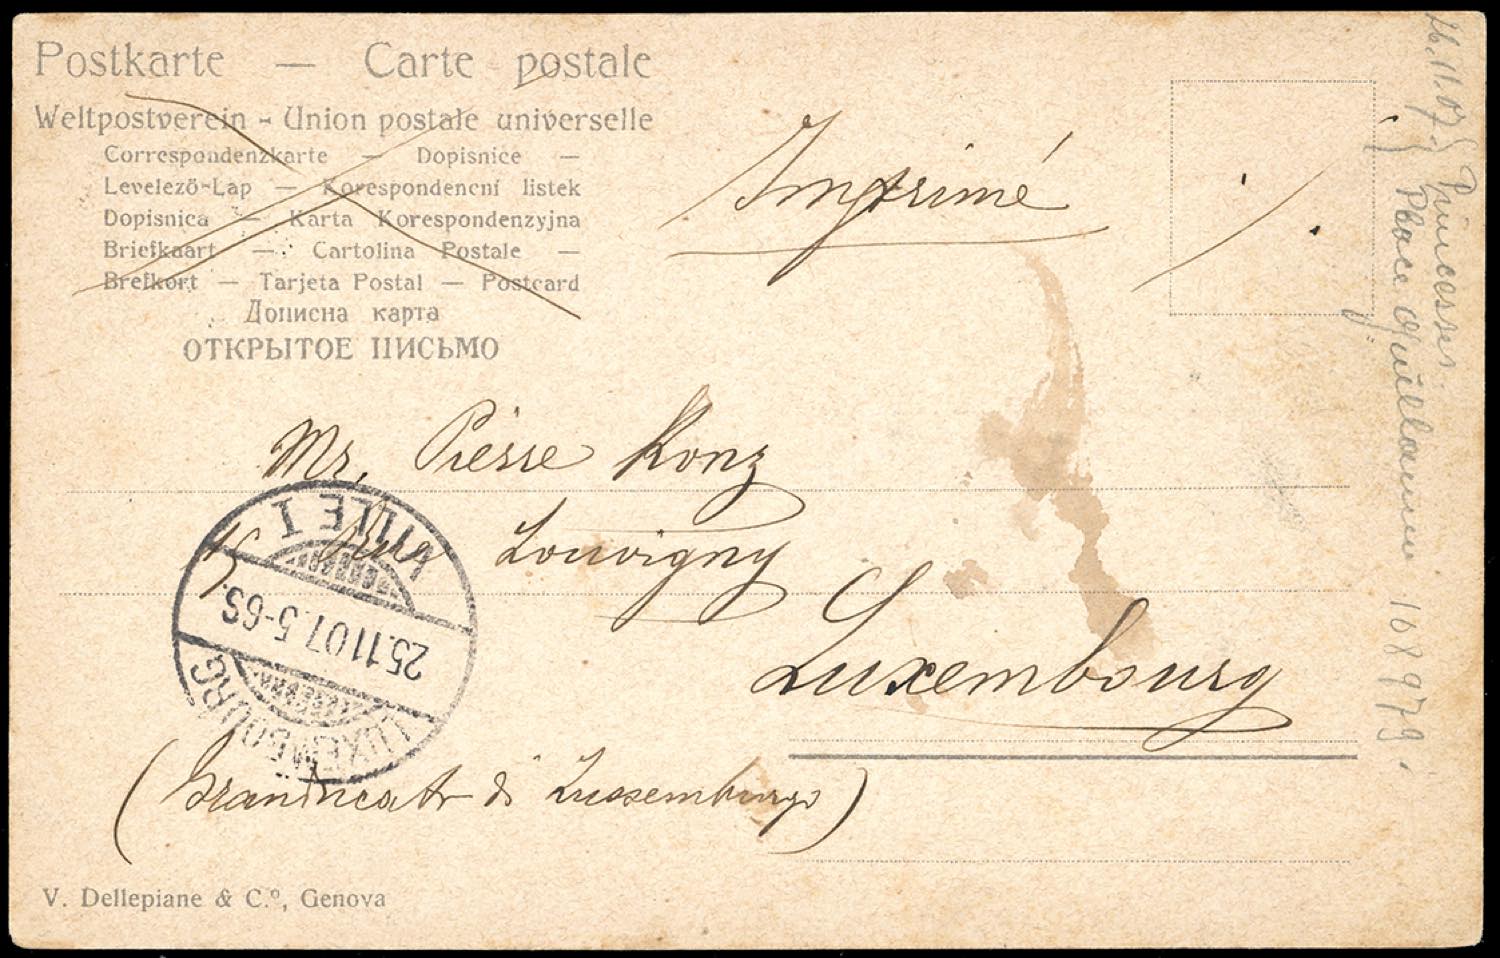 Postkarte — Carte postale
Weltpostverein - Union postale universelle
Correspondenzkarte — Dopisnice —
Levelező-Lap — Korespondencní listek
Dopisnica — Karta Korespondenzyjna
Briefkaart — Cartolina Postale —
Brefkort — Tarjeta Postal — Postcard
Дописна карта
ОТКРЫТОЕ ПИСЬМО
Imprimé
Mr. Pierre Konz
15 Rue Louvigny
Luxembourg
(Granducato di Lussemburgo)
LUXEMBOURG
25.11.07. 5-6S.
VILLE I
V. Dellepiane & C.º, Genova
26.11.07.
Princesses.
Place Guillaume
168979.